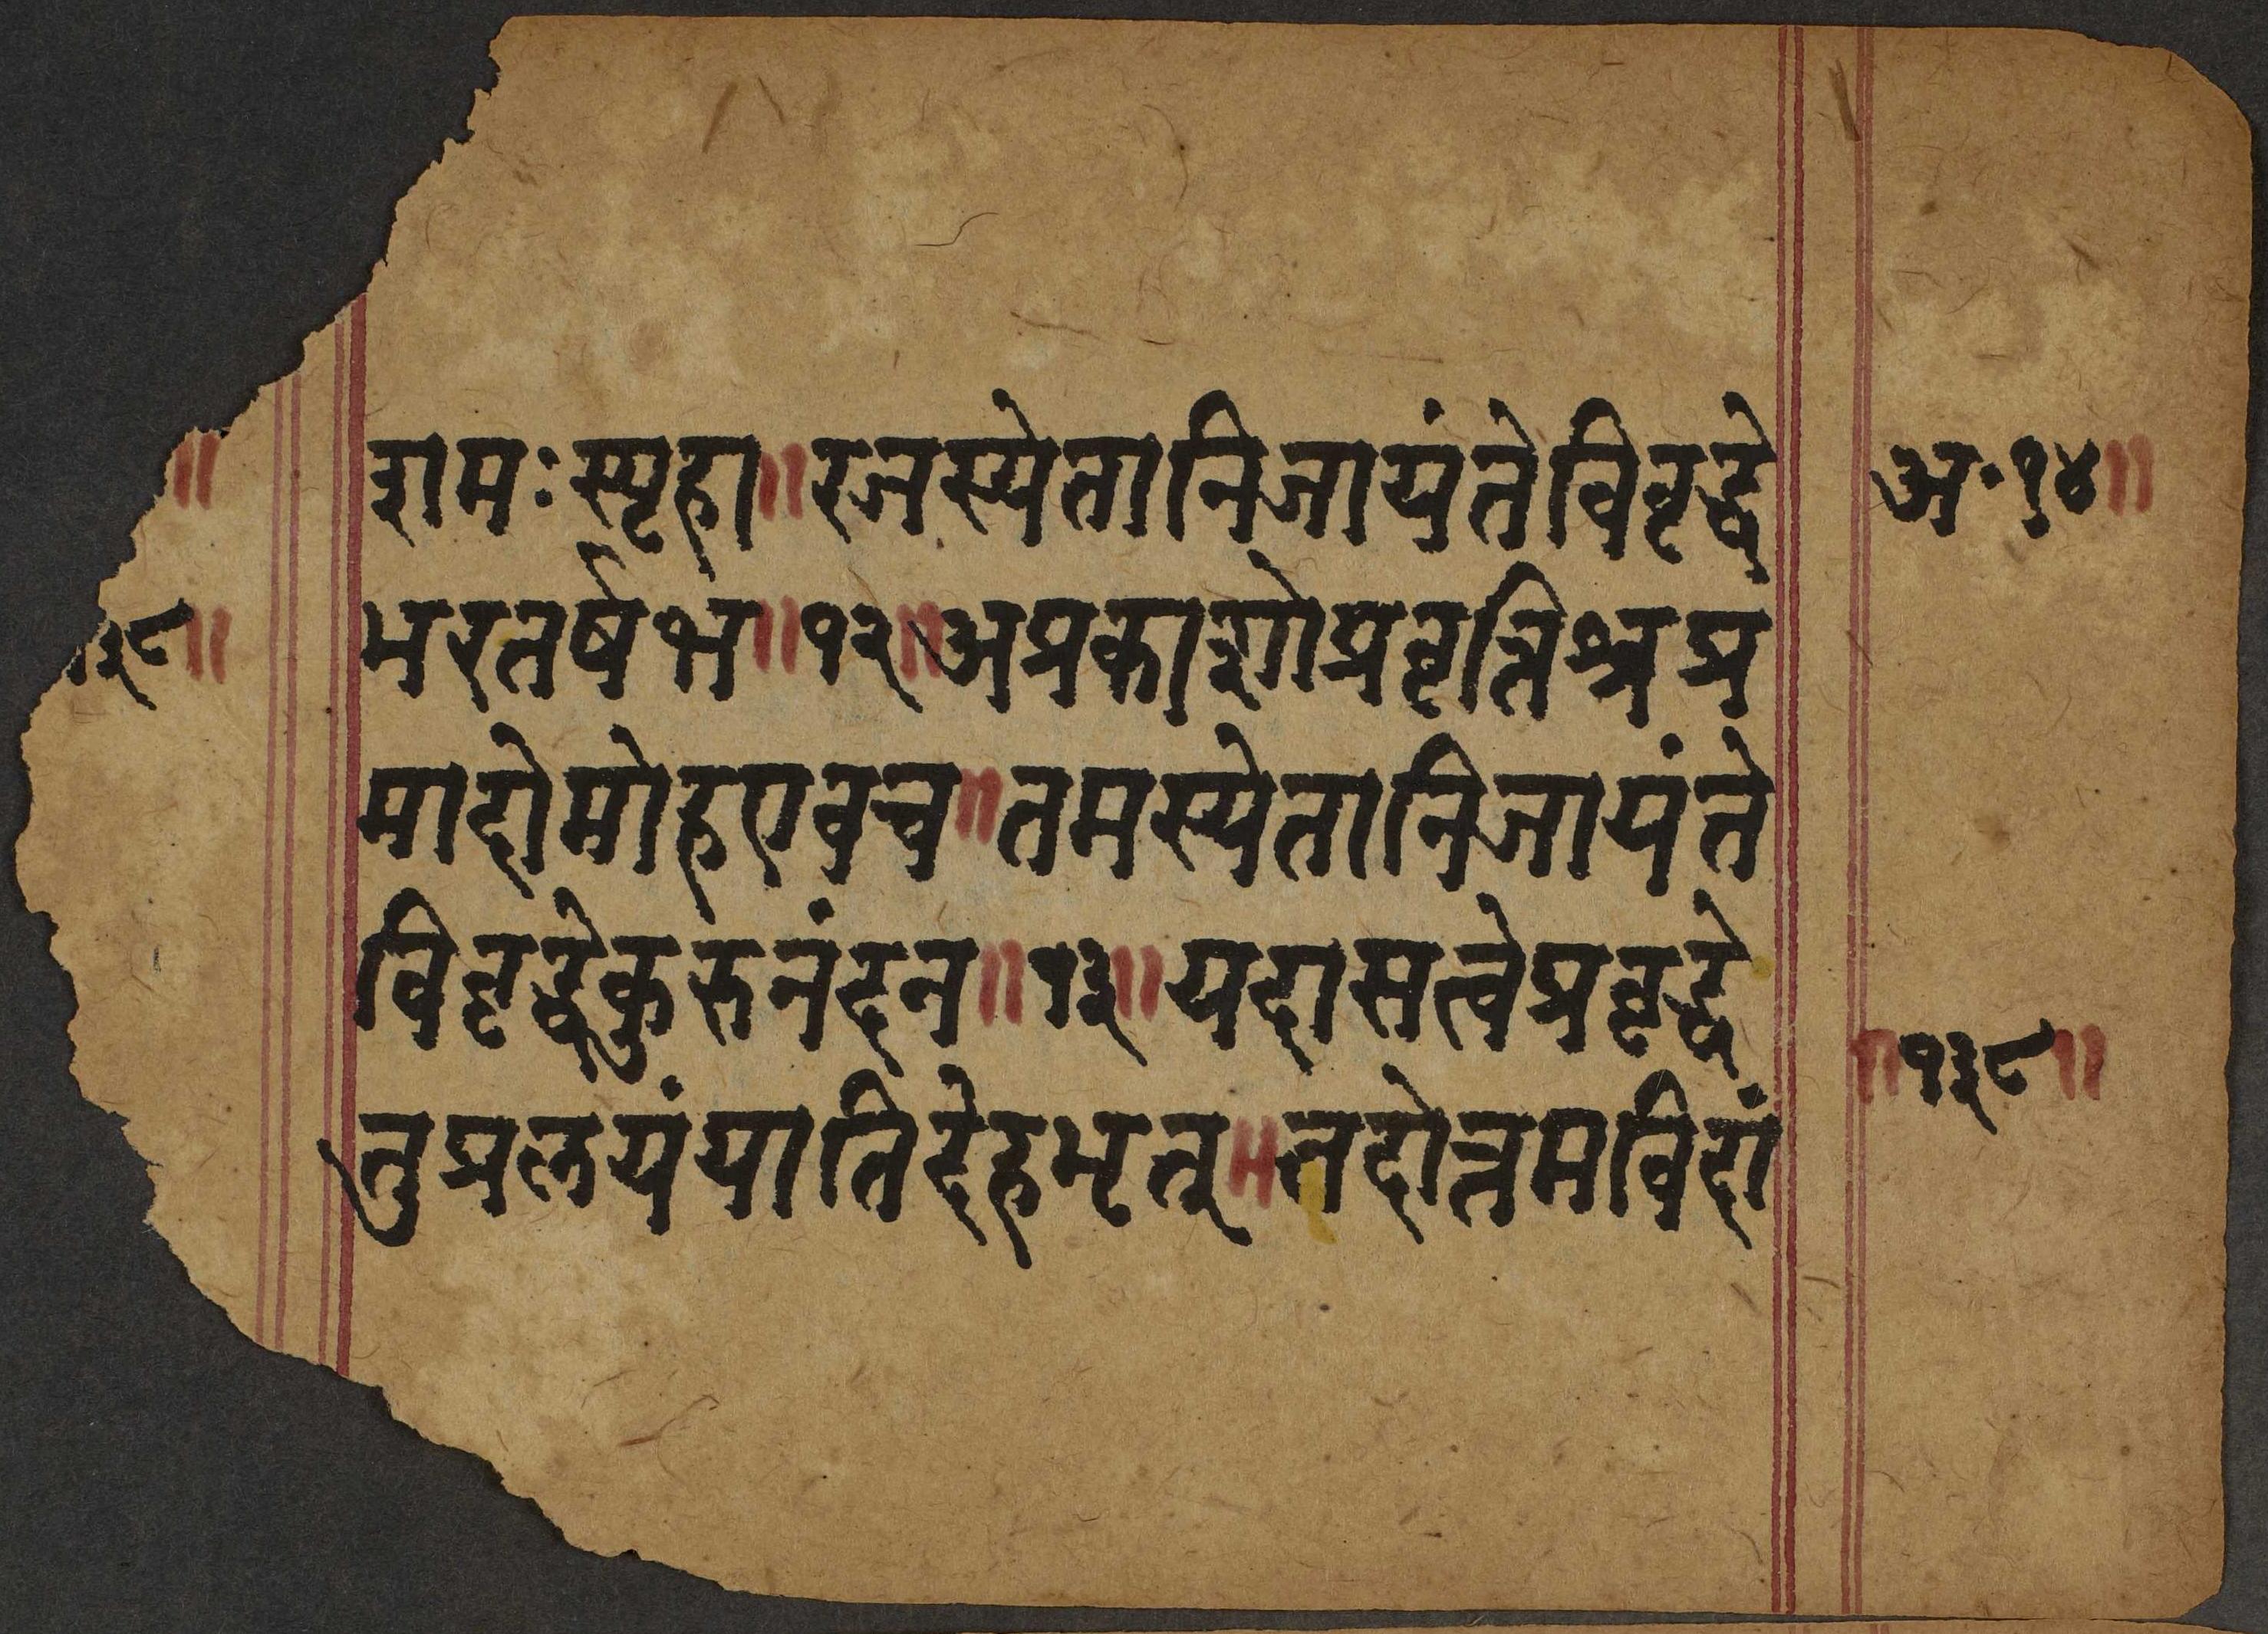 शमः स्पृहा ॥ रजस्येतानि जायंते विवृद्धे
भरतर्षभ ॥ १२ ॥ अप्रकाशोप्रवृत्तिश्च प्र
मादो मोह एव च ॥ तमस्येतानि जायंते
विवृद्धे कुरुनंदन ॥ १३ ॥ यदा सत्वे प्रवृद्धे
तु प्रलयं याति देहभृत् ॥ तदोत्तमविदां
अ॰ १४ ॥
॥ १३८ ॥
॥
३८ ॥